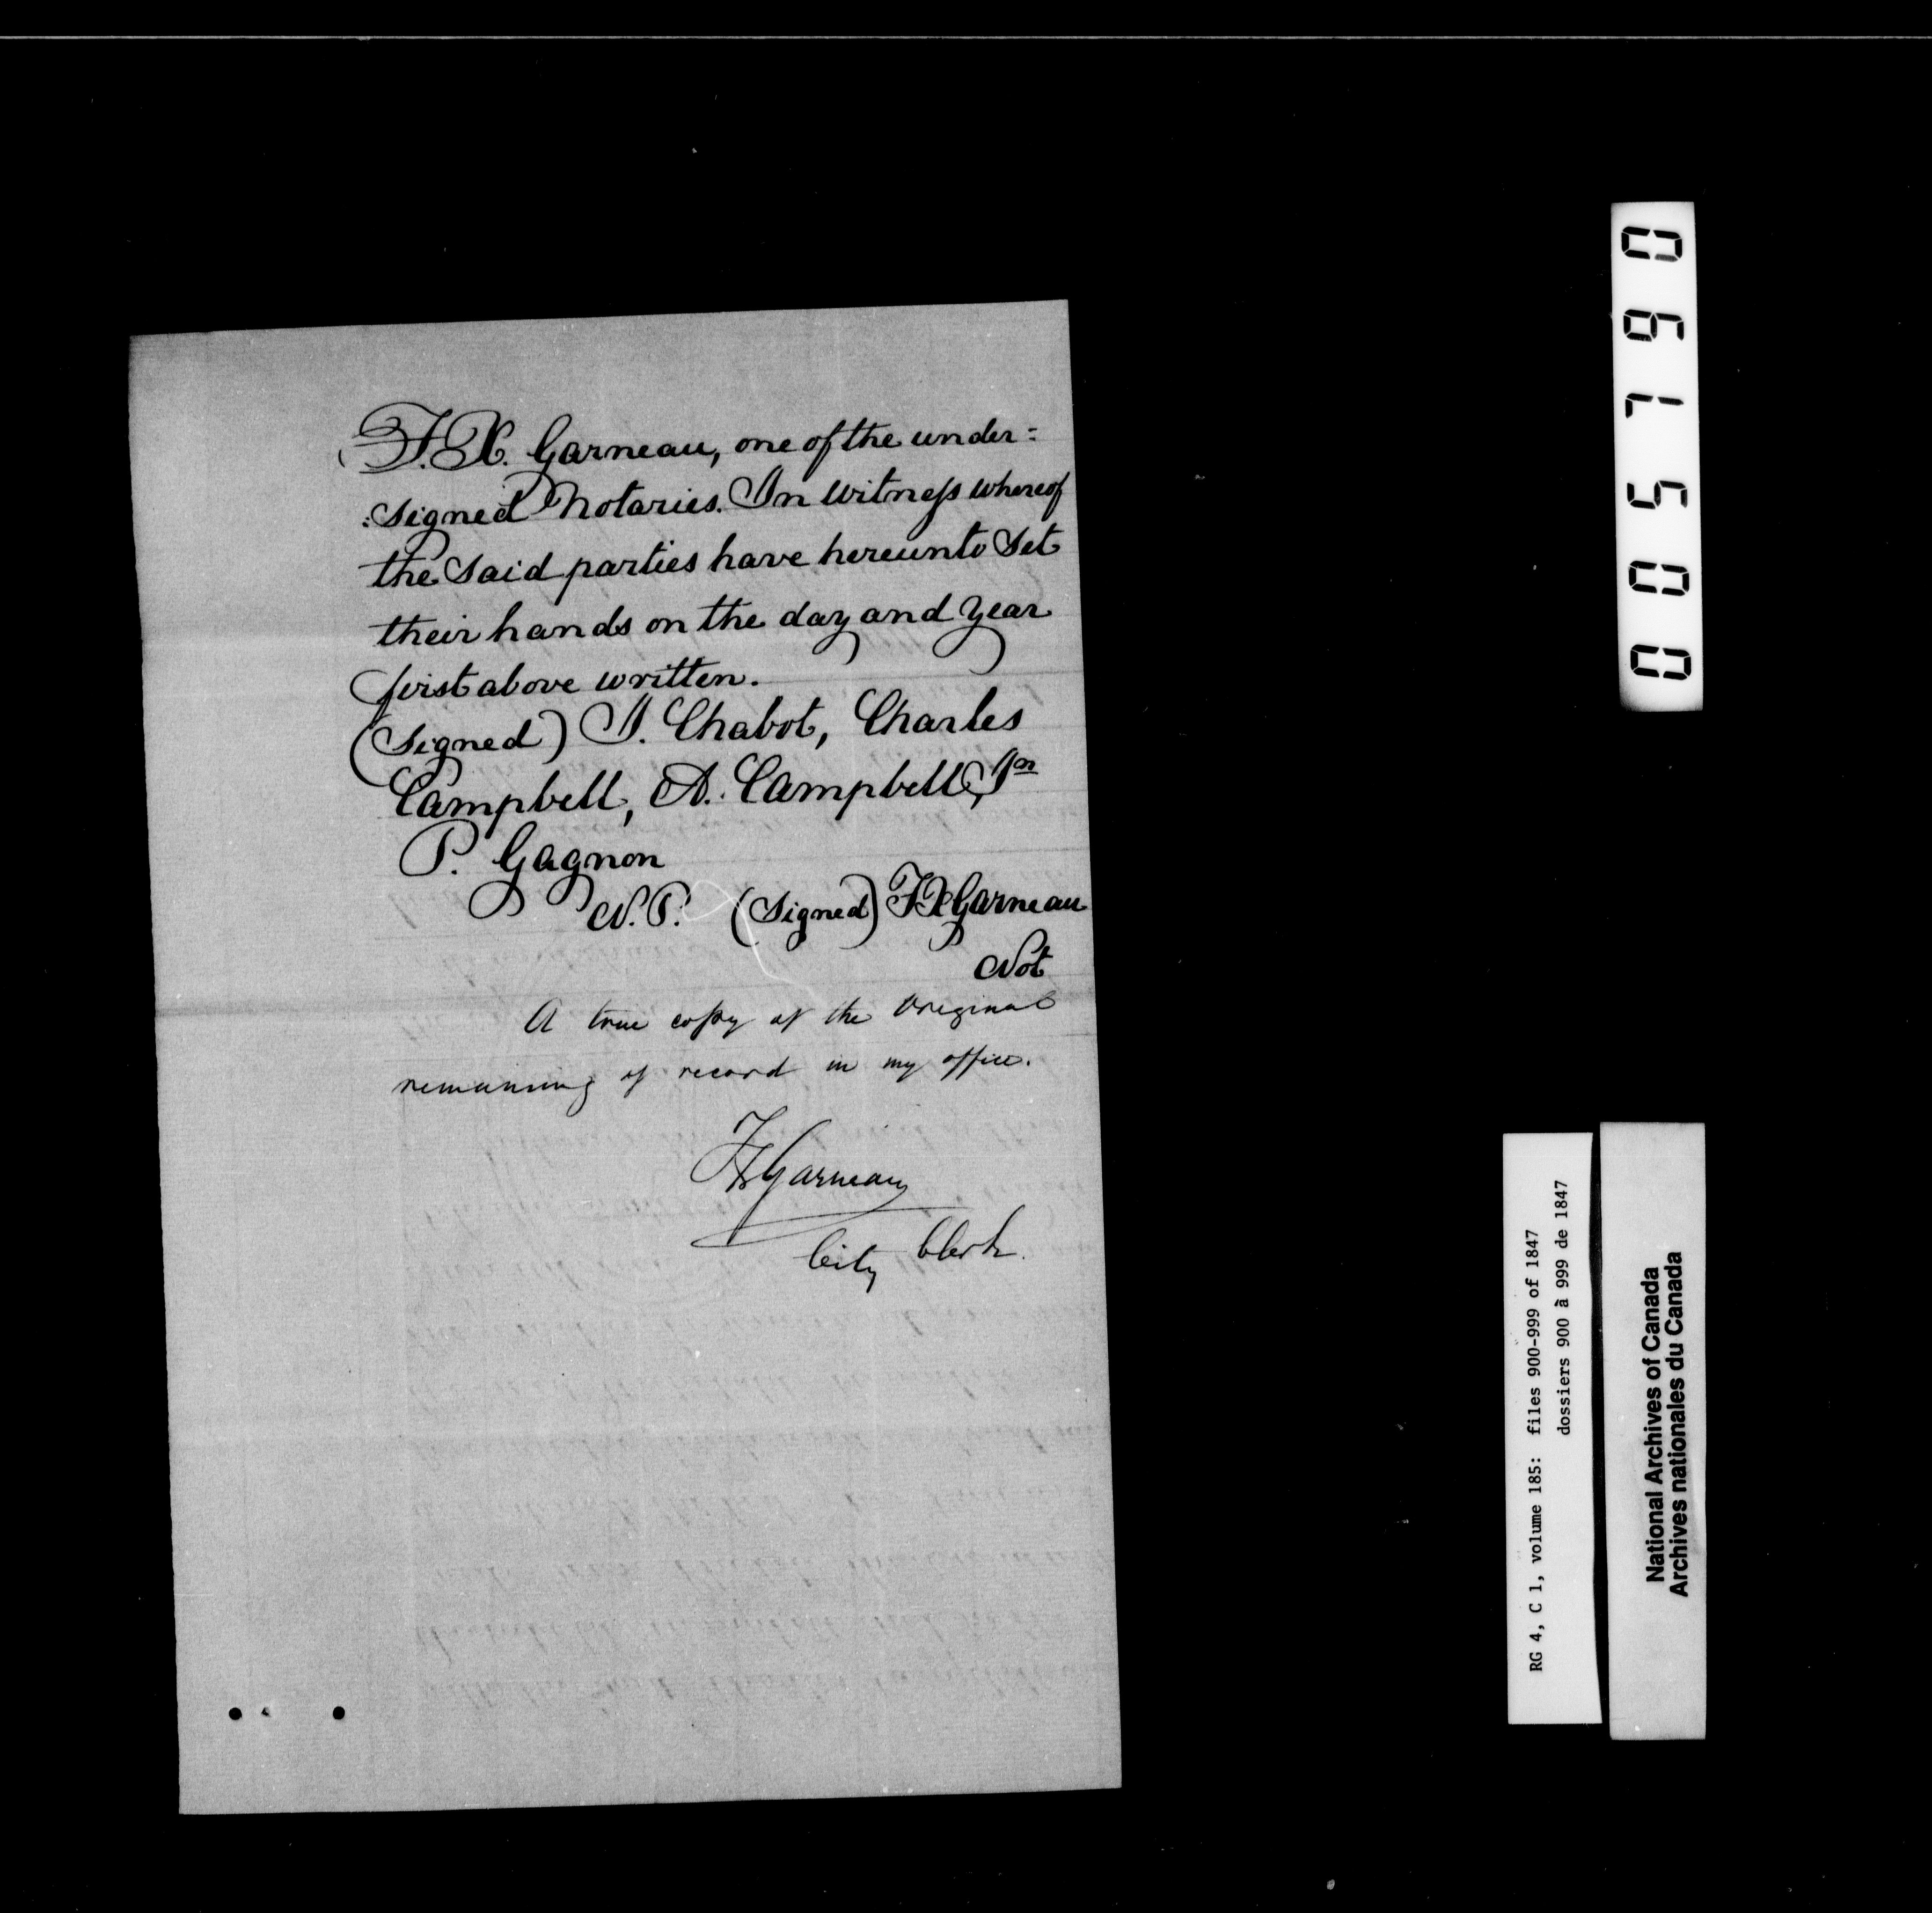 F. X. Garneau, one of the under=
=signed Notaries. In Witness whereof
the said parties have hereunto set
their hands on the day and year
first above written.
(Signed) J. Chabot, Charles
Campbell, A. Campbell, Jn
P. Gagnon
N. P. (Signed) F X Garneau
Not
A true copy of the Original
remaining of record in my office.
FXGarneau
City Clerk.
005790
RG 4, C 1, volume 185: files 900-999 of 1847
dossiers 900 à 999 de 1847
National Archives of Canada
Archives nationales du Canada